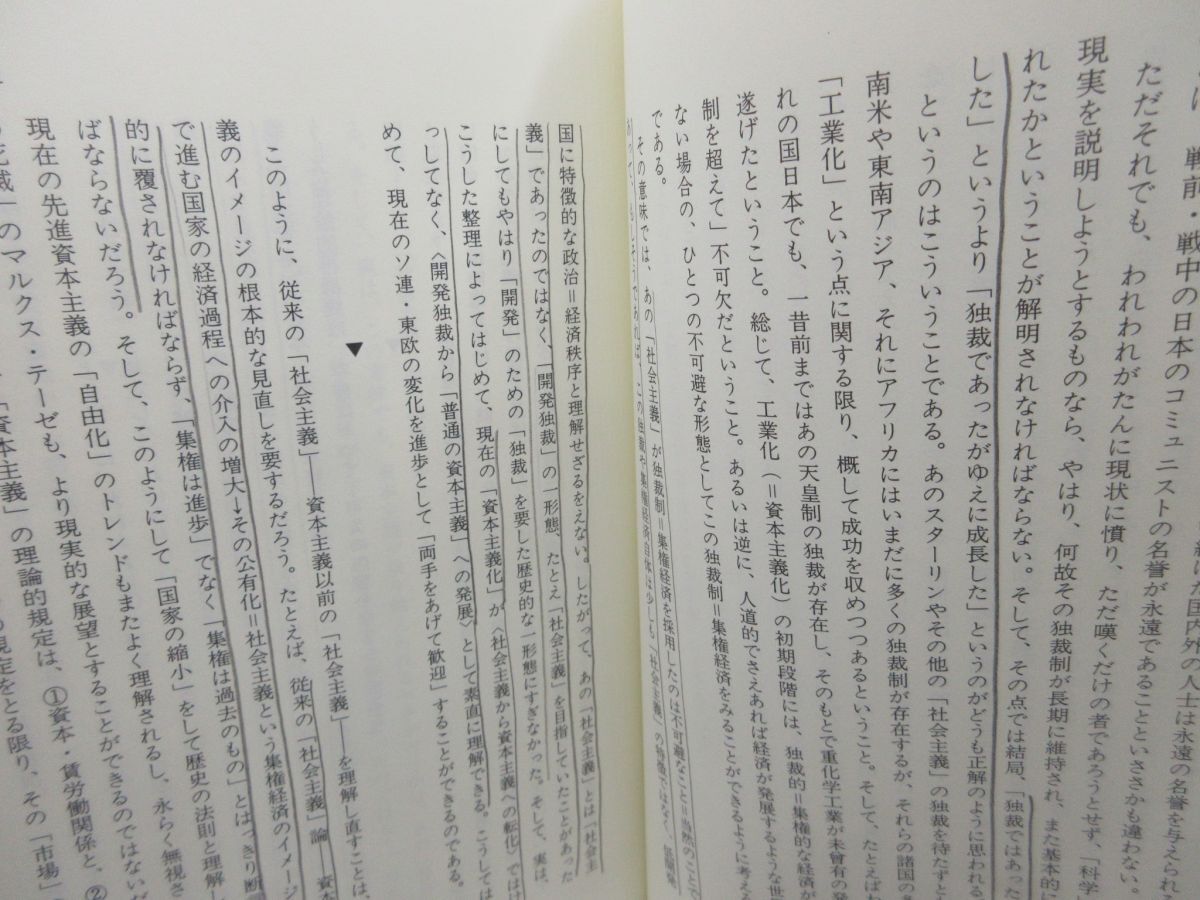 戦前・戦中の日本のコミュニストの名誉が永遠であることといささかも違わない。
ただそれでも、われわれがたんに現状に憤り、ただ嘆くだけの者であろうとせず、「科学
現実を説明しようとするものなら、やはり、何故その独裁制が長期に維持され、また基本的に
れたかということが解明されなければならない。そして、その点では結局、「独裁ではあった
した」というより「独裁であったがゆえに成長した」というのがどうも正解のように思われる。
というのはこういうことである。あのスターリンやその他の「社会主義」の独裁を待たずと
南米や東南アジア、それにアフリカにはいまだに多くの独裁制が存在するが、それらの諸国の多
「工業化」という点に関する限り、概して成功を収めつつあるということ。そして、たとえばわ
れの国日本でも、一昔前まではあの天皇制の独裁が存在し、そのもとで重化学工業が未曾有の発
遂げたということ。総じて、工業化（＝資本主義化）の初期段階には、独裁的＝集権的な経済が
制を超えて」不可欠だということ。あるいは逆に、人道的でさえあれば経済が発展するような世
ない場合の、ひとつの不可避な形態としてこの独裁制＝集権経済をみることができるように考え
である。
その意味では、あの「社会主義」が独裁制＝集権経済を採用したのは不可避なこと＝当然のことで
あって、もしそうであれば、この独裁や集権経済自体は少しも「社会主義」の特徴ではなく、低開発
国に特徴的な政治＝経済秩序と理解せざるをえない。したがって、あの「社会主義」とは「社会主
義」であったのではなく、「開発独裁」の一形態、たとえ「社会主義」を目指していたことがあった
にしてもやはり「開発」のための「独裁」を要した歴史的な一形態にすぎなかった。そして、実は、
こうした整理によってはじめて、現在の「資本主義化」が〈社会主義から資本主義への転化〉ではけ
っしてなく、〈開発独裁から「普通の資本主義」への発展〉として素直に理解できる。こうしては
めて、現在のソ連・東欧の変化を進歩として「両手をあげて歓迎」することができるのである。
▼
このように、従来の「社会主義」――資本主義以前の「社会主義」――を理解し直すことは、
義のイメージの根本的な見直しを要するだろう。たとえば、従来の「社会主義」論――資本
で進む国家の経済過程への介入の増大→その公有化＝社会主義という集権経済のイメージ
的に覆されなければならず、「集権は進歩」でなく「集権は過去のもの」とはっきり断
ばならないだろう。そして、このようにして「国家の縮小」をして歴史の法則と理解
現在の先進資本主義の「自由化」のトレンドもまたよく理解されるし、永らく無視さ
の死滅」のマルクス・テーゼも、より現実的な展望とすることができるのではないだ
「資本主義」の理論的規定は、①資本・賃労働関係と、②
の規定をとる限り、その「市場」